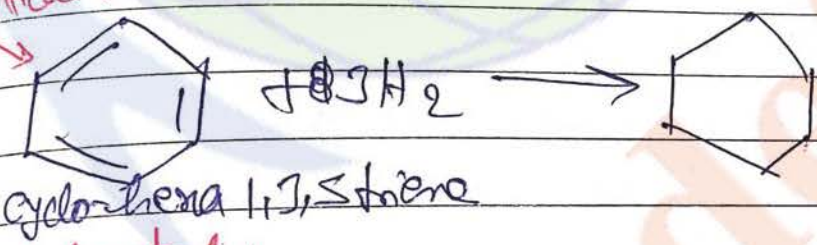 + 3H2 ⟶
cyclo-hexa 1,3,5 triene